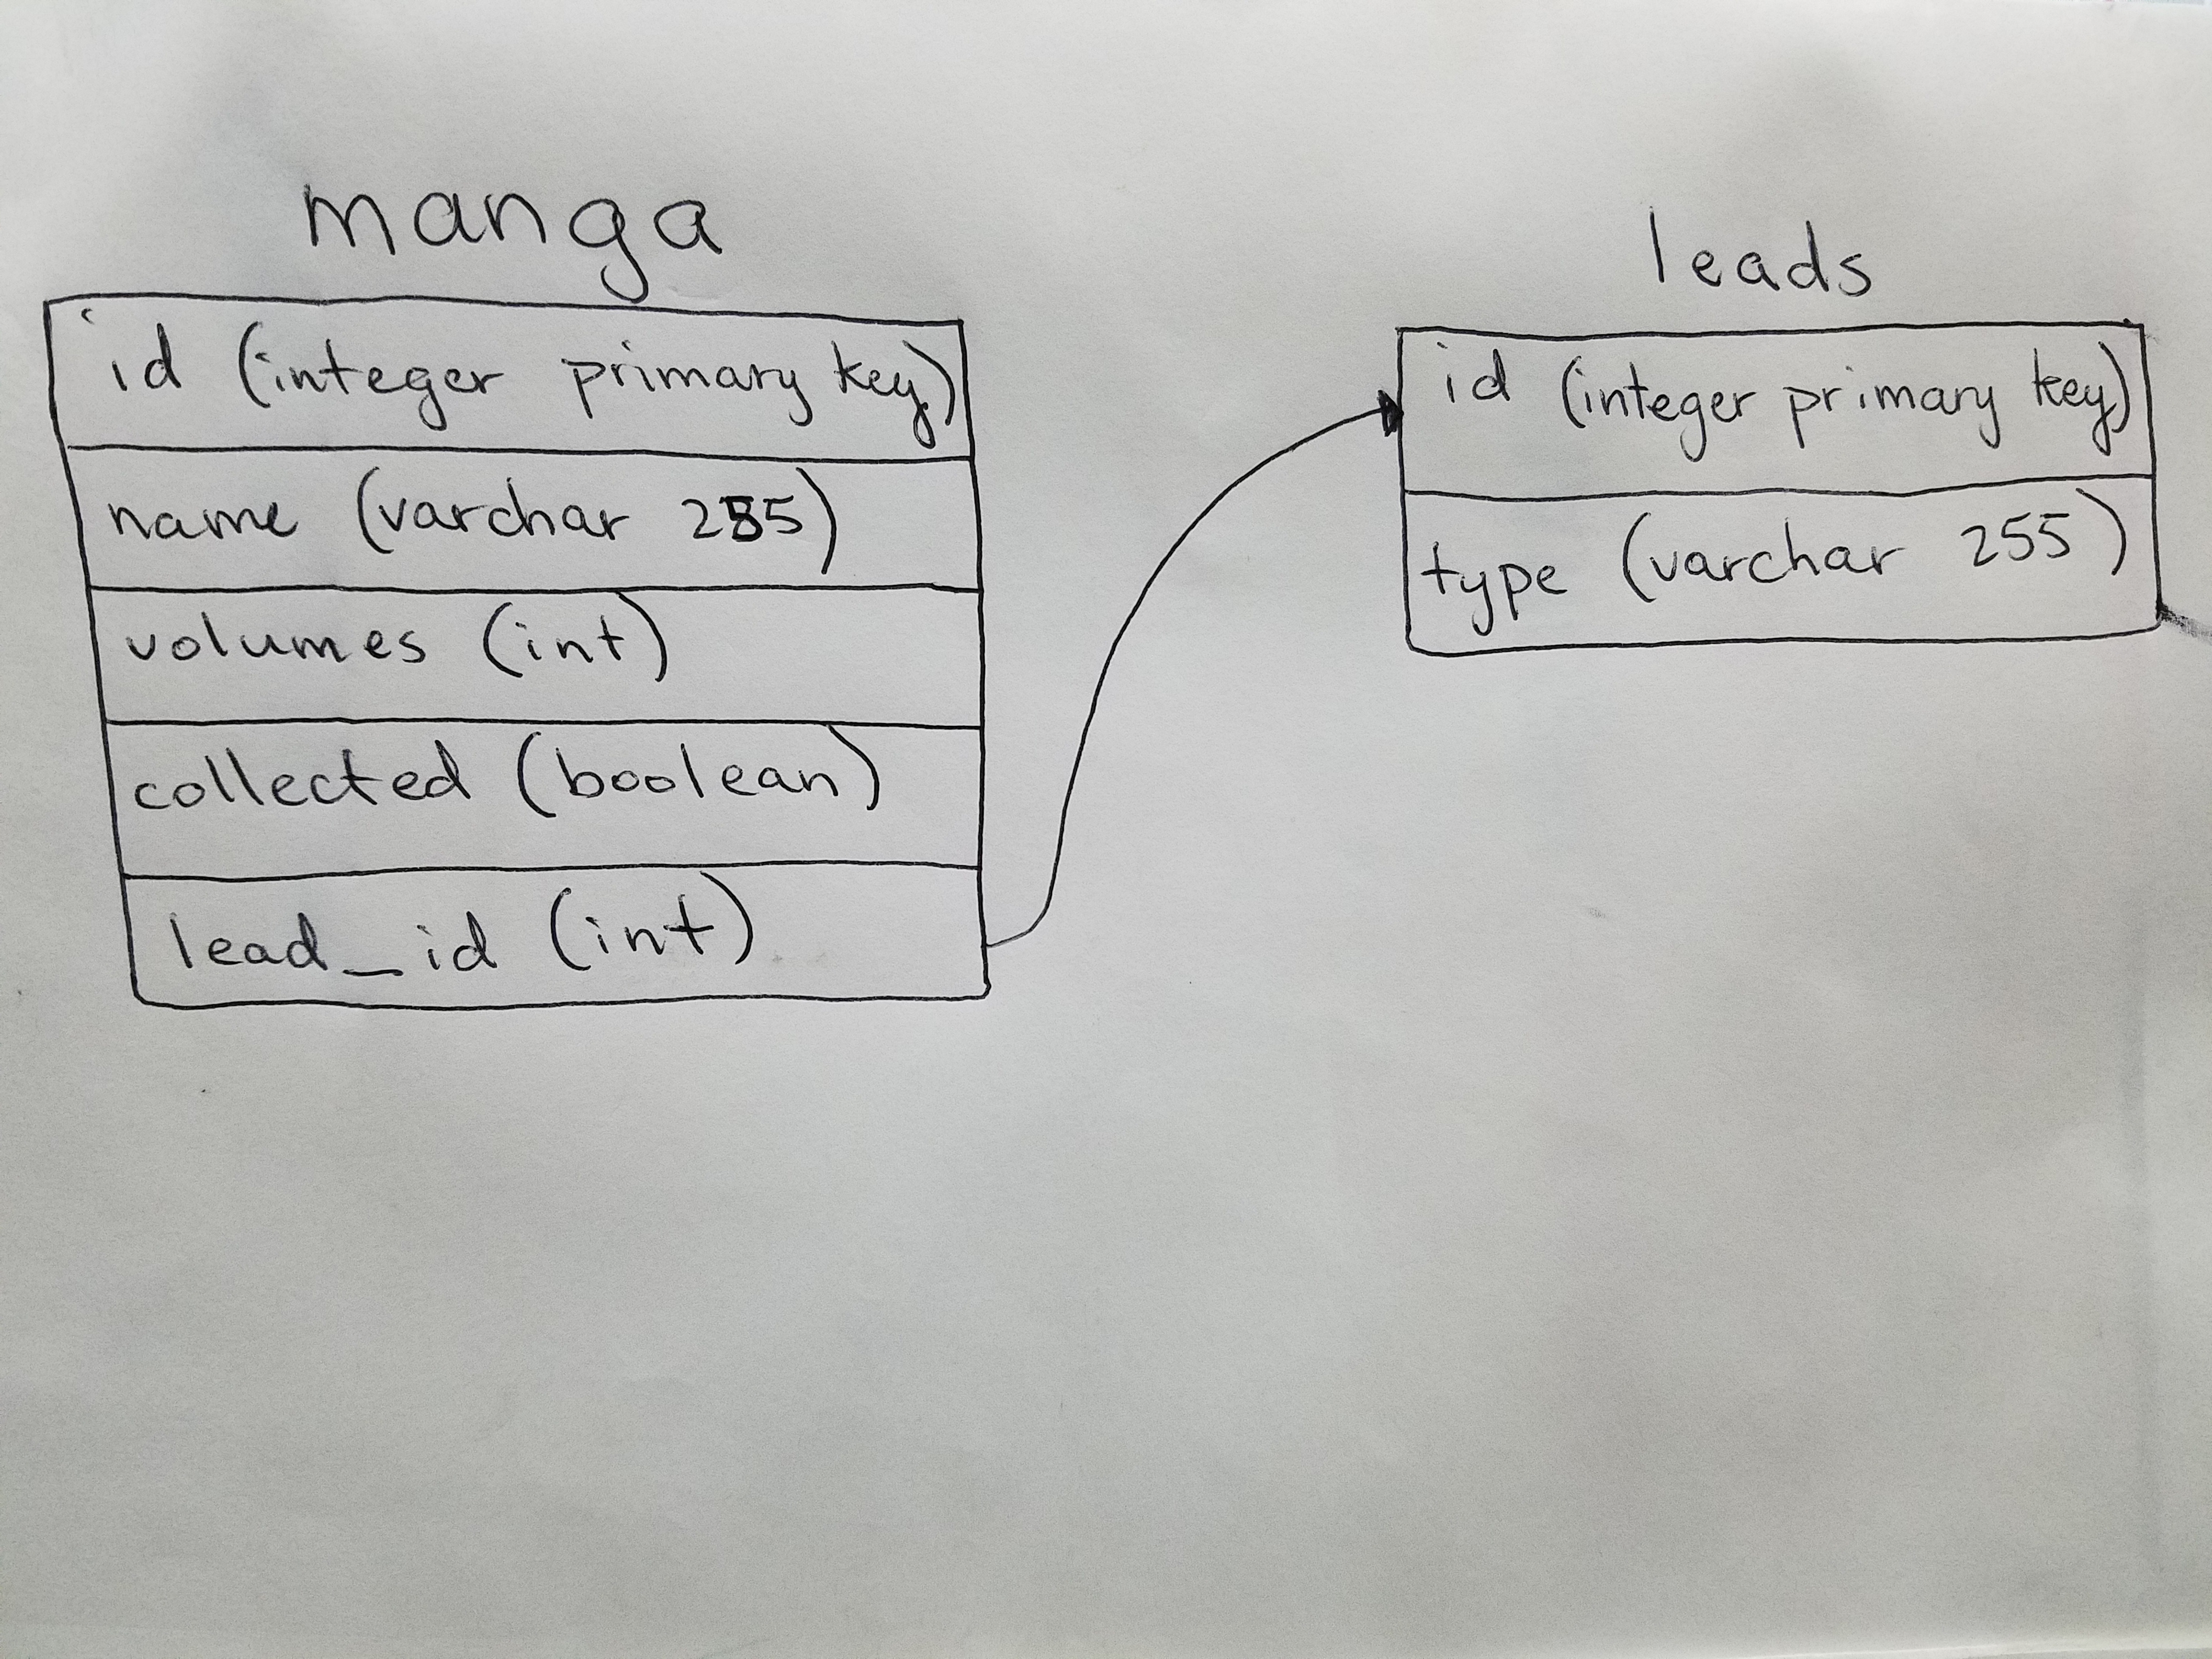 manga
id (integer primary key)
name (varchar 255)
volumes (int)
collected (boolean)
lead_id (int)
leads
id (integer primary key)
type (varchar 255)